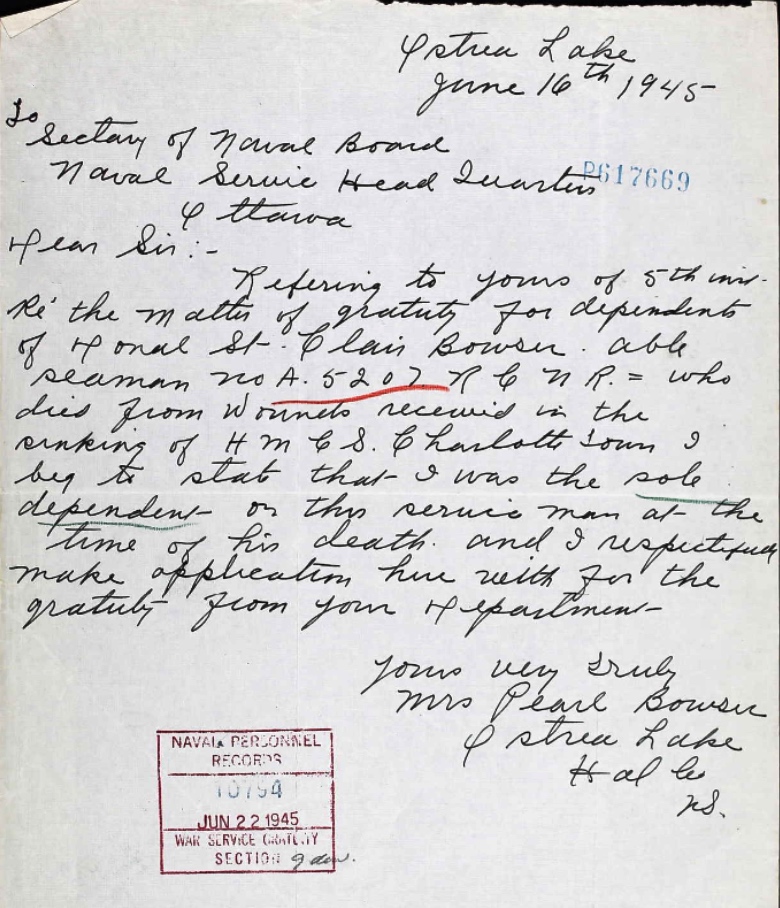 Ostrea Lake
June 16th 1945
To
Sectary of Naval Board
Naval Service Head Quarters
P617669
Ottawa
Dear Sir:-
Refering to yours of 5th inst.
Re' the matter of gratuity for dependents
of Donal St. Clair Bowser. able
seaman no A. 5207 R C N R. = who
died from wounds received in the
sinking of H M C S. Charlotte Town I
beg to state that I was the sole
dependent on this service man at the
time of his death. and I respectfully
make application here with for the
gratuity from your Department
Yours very Truly
Mrs Pearl Bowser
Ostrea Lake
Hal Co
NS.
NAVAL PERSONNEL
RECORDS
10794
JUN 22 1945
WAR SERVICE GRATUITY
SECTION